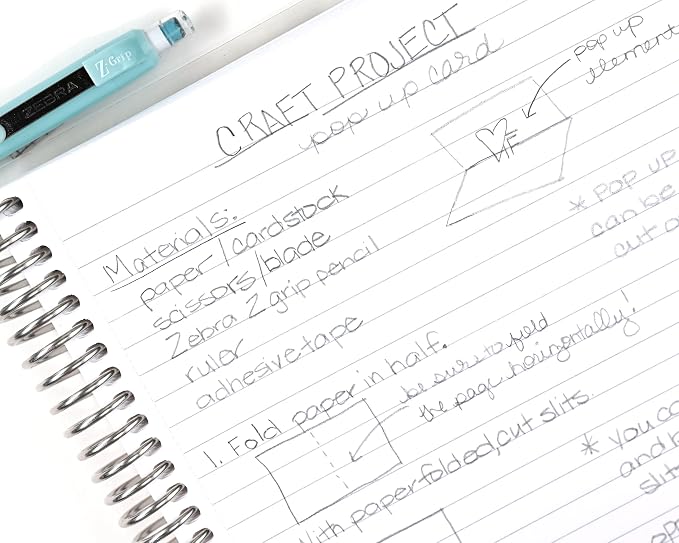 Z-Grip
ZEBRA
CRAFT PROJECT
pop up card
pop up
element
Materials:
paper/cardstock
scissors/blade
Zebra Z grip pencil
ruler
adhesive tape
* pop up
can be
cut
1. Fold paper in half.
be sure to fold
the page horizontally!
With paper folded, cut slits.
* you
and